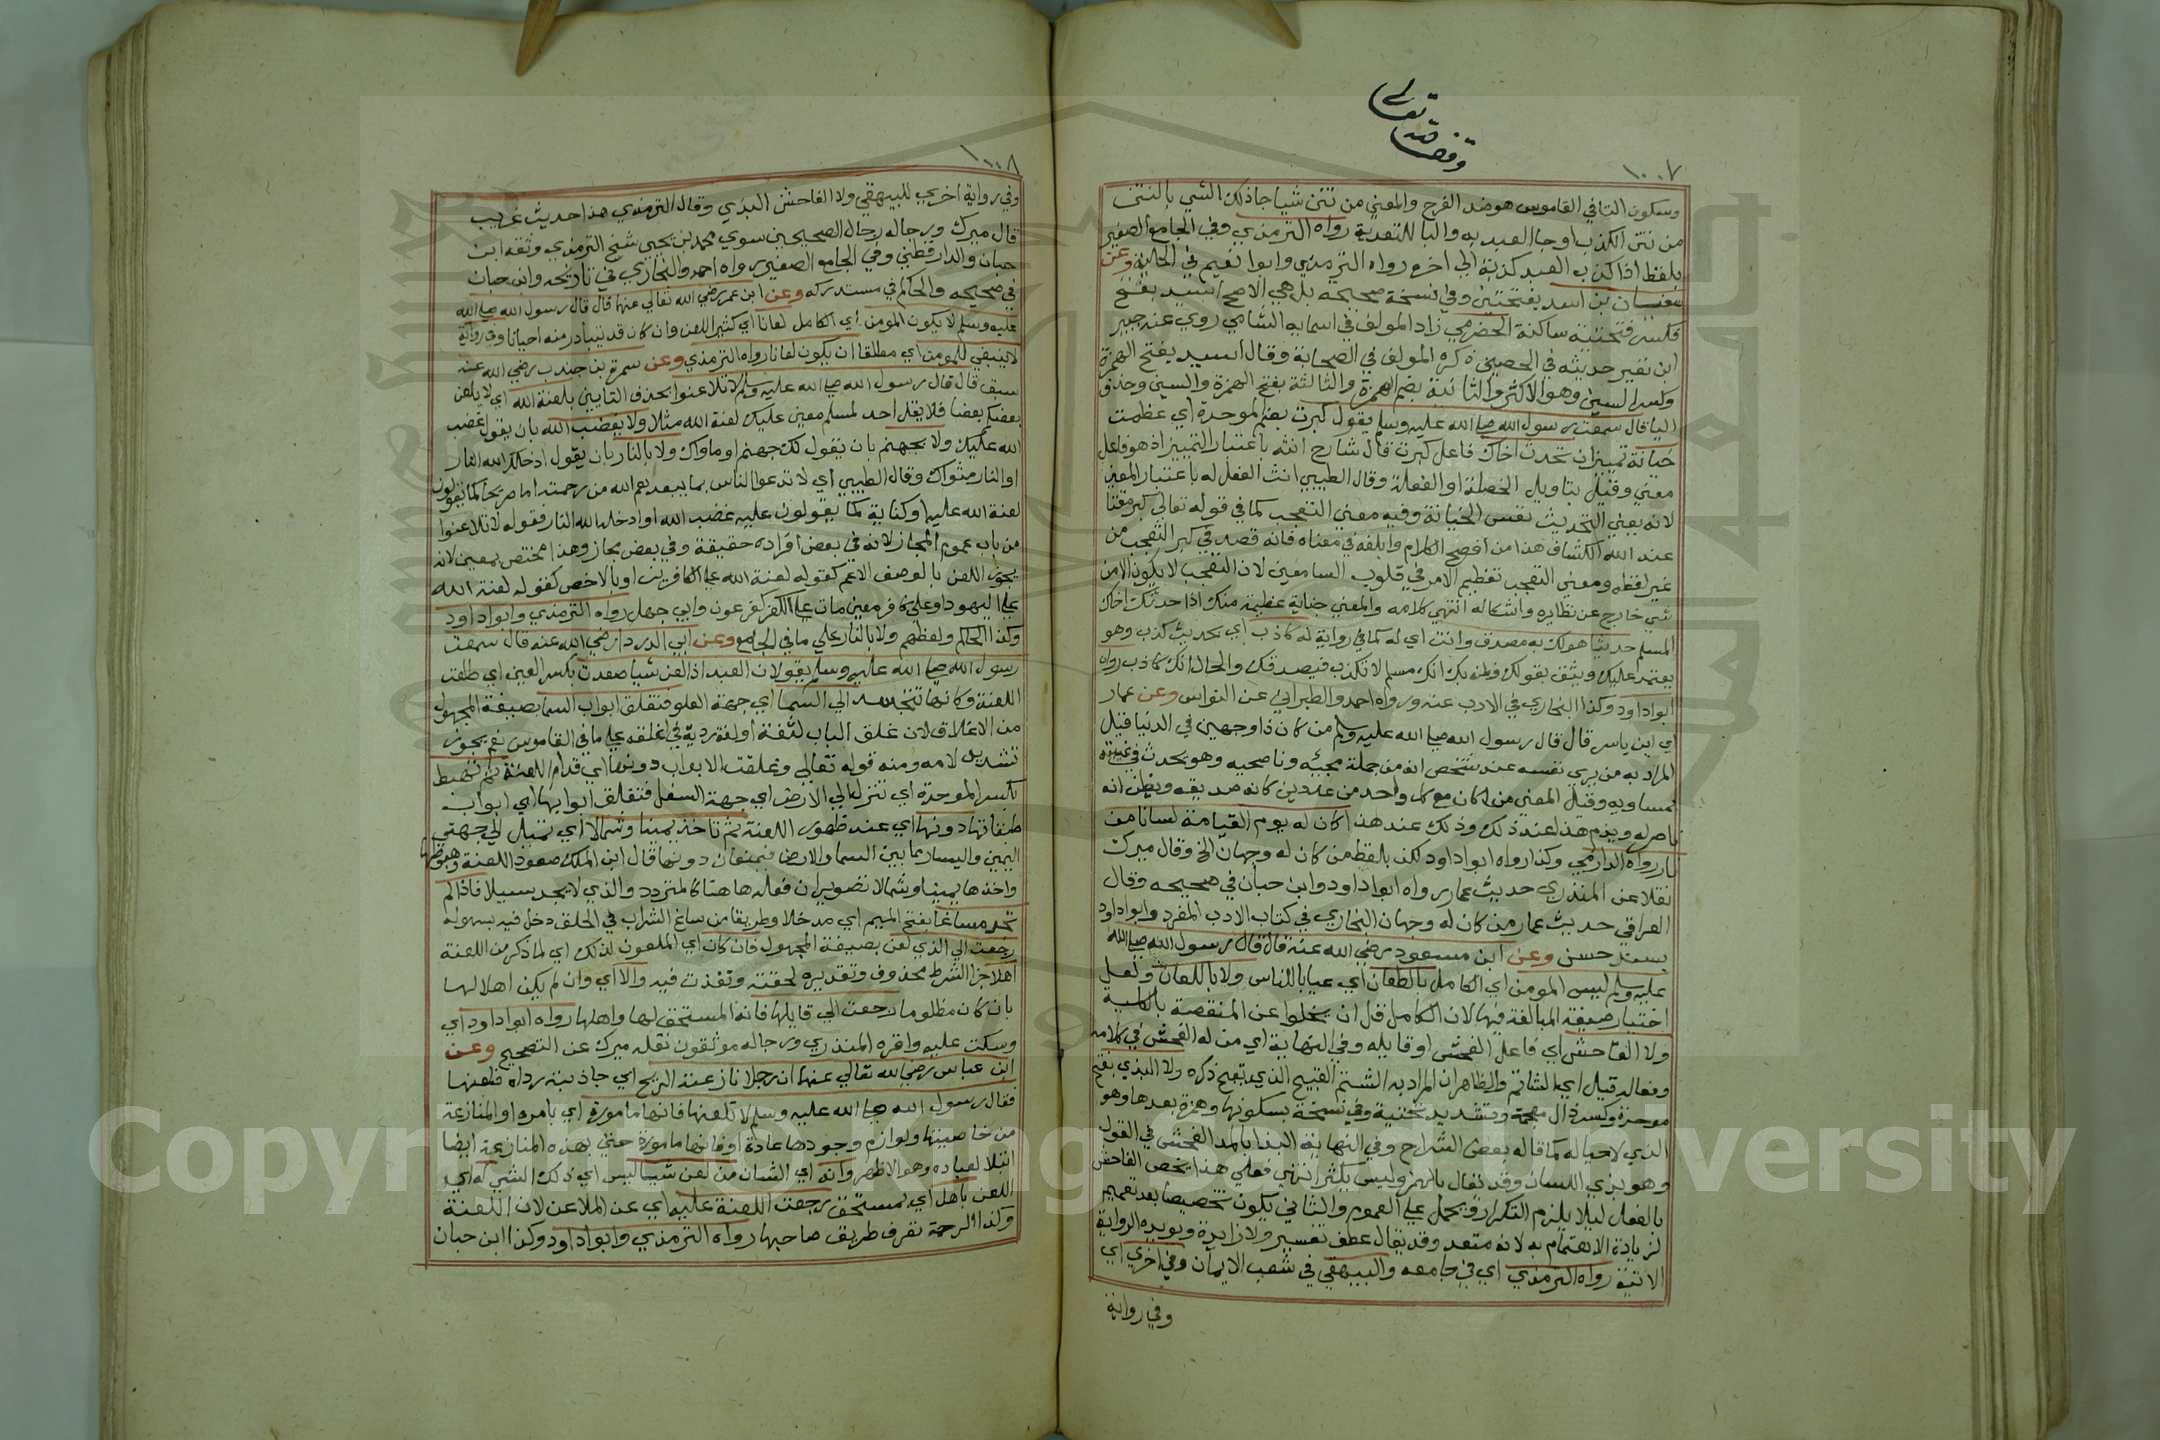 وقف لله تعالى
١٠٠٧
وسكون التا في القاموس هو ضد الفرح والمعني من نتن شيا جا ذلك الشي بالنتن
من نتن الكذب او جا العبد به والبا للتعدية رواه الترمذي وفي الجامع الصغير
بلفظ اذا كذب العبد كذبة الى اخره رواه الترمذي وابو نعيم في الحلية وعن
سفيان بن اسد بفتحتين وفي نسخة صحيحه بل هي الاصح اسيد بفتح
فكسر فتحتية ساكنة الحضرمي زاد المولف في اسمايه الشامي روي عنه جبير
ابن نفير حديثه في الحصين ذكره المولف في الصحابة وقال اسيد بفتح الهمزة
وكسر السين وهو الاكثر والثانية بضم الهمزة والثالثة بفتح الهمزة والسين وحذف
اليا قال سمعت رسول الله صلى الله عليه وسلم يقول كبرت بضم الموحدة اي عظمت
خيانة تمييز ان تحدث اخاك فاعل كبرت قال شارح انثه باعتبار التمييز اذ هو فاعل
معني وقيل بتاويل الخصلة او الفعلة وقال الطيبي انث الفعل له باعتبار المعني
لانه يعني التحديث نفس الخيانة وفيه معني التعجب كما في قوله تعالى كبر مقتا
عند الله الكشاف هذا من افصح الكلام وابلغه في معناه فانه قصد في كبر التعجب من
غير لفظه ومعني التعجب تعظيم الامر في قلوب السامعين لان التعجب لا يكون الا من
شي خارج عن نظايره واشكاله انتهي كلامه والمعني جناية عظيمة منك اذا حدثت اخاك
المسلم حديثا هو لك به مصدق وانت اي له كما في رواية له كاذب اي بحديث كذب وهو
يعتمد عليك ويثق بقولك وظنه بك انك مسلم لا تكذب فيصدقك والحال انك كاذب رواه
ابو داود وكذا البخاري في الادب عنه ورواه احمد والطبراني عن النواس وعن عمار
اي ابن ياسر قال قال رسول الله صلى الله عليه وسلم من كان ذا وجهين في الدنيا قيل
المراد به من يري نفسه عند شخص انه من جملة محبيه وناصحيه وهو يحدث في غيبته
بمساويه وقيل المعني من كان مع كل واحد من عدوين كانه صديقه ويظن انه
ناصر له ويذم هذا عند ذلك وذلك عند هذا كان له يوم القيامة لسانا من
نار رواه الدارمي وكذا رواه ابو داود لكن بلفظ من كان له وجهان الخ وقال ميرك
نقلا عن المنذري حديث عمار رواه ابو داود وابن حبان في صحيحه وقال
العراقي حديث عمار من كان له وجهان البخاري في كتاب الادب المفرد وابو داود
بسند حسن وعن ابن مسعود رضي الله عنه قال قال رسول الله صلى الله
عليه وسلم ليس المومن اي الكامل بالطعان اي عيابا للناس ولا باللعان ولعل
اختيار صيغة المبالغة فيها لان الكامل قل ان يخلوا عن المنقصة بالكلية
ولا الفاحش اي فاعل الفحش او قايله وفي النهاية اي من له الفحش في كلامه
وفعاله قيل اي الشاتم والظاهر ان المراد به الشتم القبيح الذي يقبح ذكره ولا البذي بفتح
موحدة وكسر ذال معجمة وتشديد تحتية وفي نسخة بسكونها وهمزة بعدها وهو
الذي لا حيا له كما قاله بعض الشراح وفي النهاية البذا بالمد الفحش في القول
وهو بذي اللسان وقد يقال بالهمز وليس بكثير انتهي فعلي هذا يخص الفاحش
بالفعل ليلا يلزم التكرار ويحمل على العموم والثاني يكون تخصيصا بعد تعميم
لزيادة الاهتمام به لانه متعد وقد يقال عطف تفسير ولا زايدة ويويده الرواية
الاتية رواه الترمذي اي في جامعه والبيهقي في شعب الايمان وفي اخري اي
وفي رواية
١٠٠٨
وفي رواية اخري للبيهقي ولا الفاحش البذي وقال الترمذي هذا حديث غريب
قال ميرك ورجاله رجال الصحيحين سوي محمد بن يحيي شيخ الترمذي وثقه ابن
حبان والدارقطني وفي الجامع الصغير رواه احمد والبخاري في تاريخه وابن حبان
في صحيحه والحاكم في مستدركه وعن ابن عمر رضي الله تعالى عنهما قال قال رسول الله صلى الله
عليه وسلم لا يكون المومن اي الكامل لعانا اي كثير اللعن وان كان قد يتبادر منه احيانا وفي رواية
لا ينبغي للمومن اي مطلقا ان يكون لعانا رواه الترمذي وعن سمرة بن جندب رضي الله عنه
سبق قال قال رسول الله صلى الله عليه وسلم لا تلاعنوا بحذف التايين بلعنة الله اي لا يلعن
بعضكم بعضا فلا يقل احد لمسلم معين عليك لعنة الله مثلا ولا بغضب الله بان يقول غضب
الله عليك ولا بجهنم بان يقول لك جهنم او ماواك ولا بالنار بان يقول ادخلك الله النار
او النار مثواك وقال الطيبي اي لا تدعوا الناس بما يبعدهم الله من رحمته اما صريحا كما تقولون
لعنة الله عليه او كناية كما يقولون عليه غضب الله او ادخله الله النار فقوله لا تلاعنوا
من باب عموم المجاز لانه في بعض افراده حقيقة وفي بعض مجاز وهذا مختص بمعين لانه
يجوز اللعن بالوصف الاعم كقوله لعنة الله على الكافرين او بالاخص كقوله لعنة الله
على اليهود او على كافر معين مات على الكفر كفرعون وابي جهل رواه الترمذي وابو داود
وكذا الحاكم ولفظهم ولا بالنار على ما في الجامع وعن ابي الدرداء رضي الله عنه قال سمعت
رسول الله صلى الله عليه وسلم يقول ان العبد اذا لعن شيا صعدت بكسر العين اي طلعت
اللعنة وكانها تتجسد الى السما اي جهة العلو فتغلق ابواب السما بصيغة المجهول
من الاغلاق لان غلق الباب لثغة او لغة ردية في اغلقه على ما في القاموس نعم يجوز
تشديد لامه ومنه قوله تعالى وغلقت الابواب دونها اي قدام اللعنة ثم تهبط
بكسر الموحدة اي تنزل الى الارض اي جهة السفل فتغلق ابوابها اي ابواب
طبقاتها دونها اي عند ظهور اللعنة ثم تاخذ يمينا وشمالا اي تميل الى جهتي
اليمين واليسار مما بين السما والارض فيمنعان دونها قال ابن الملك صعود اللعنة وهبوطها
واخذها يمينا وشمالا تصوير ان فعلها هنا كالمتردد والذي لا يجد سبيلا فاذا لم
تجد مساغا بفتح الميم اي مدخلا وطريقا من ساغ الشراب في الحلق دخل فيه بسهولة
رجعت الى الذي لعن بصيغة المجهول فان كان اي الملعون لذلك اي لما ذكر من اللعنة
اهلا جزا الشرط محذوف وتقديره لحقته ونفذت فيه والا اي وان لم يكن اهلا لها
بان كان مظلوما رجعت الى قايلها فانه المستحق لها واهلها رواه ابو داود اي
وسكت عليه واقره المنذري ورجاله موثقون نقله ميرك عن التصحيح وعن
ابن عباس رضي الله تعالى عنهما ان رجلا نازعته الريح اي جاذبته رداه فلعنها
فقال رسول الله صلى الله عليه وسلم لا تلعنها فانها مامورة اي بامره او المنازعة
من خاصيتها ولوازم وجودها عادة او فانها مامورة حتي بهذه المنازعة ايضا
ابتلا لعباده وهو الاظهر وانه اي الشان من لعن شيا ليس اي ذلك الشي له اي
اللعن باهل اي بمستحق رجعت اللعنة عليه اي عن الملاعن لان اللعنة
وكذا الرحمة تعرف طريق صاحبها رواه الترمذي وابو داود وكذا ابن حبان
Copyright © King Saud University